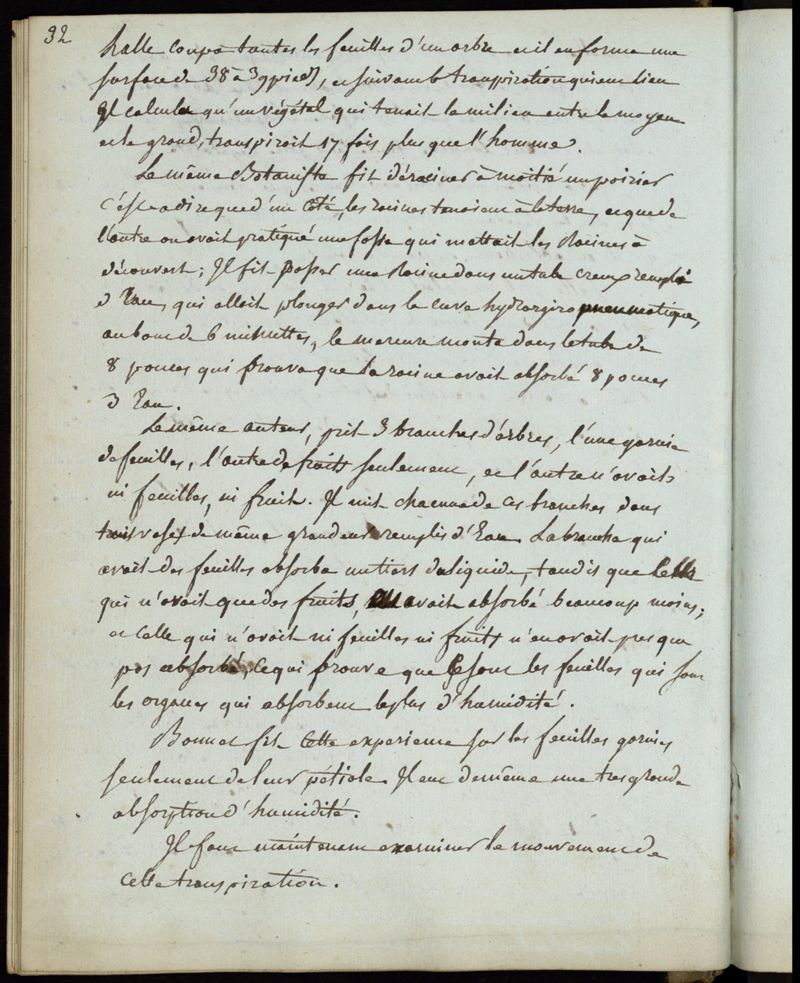 32
halle coupa toutes les feuilles d'un arbre et il en forma une
surface de 38 à 39 pieds, et suivant la transpiration qui eut lieu
Il calcula qu'un végétal qui tenait le milieu entre le moyen
et le grand, transpiroit 17 fois plus que l'homme.
Le même Botaniste fit déraciner à moitié un poirier
c'est-a dire que d'un coté, les racines tenoient à la terre, et que de
l'autre on avoit pratiqué une fosse qui mettait les Racines à
découvert; Il fit passer une Racine dans un tube creux rempli
d'Eau, qui alloit plonger dans la cuve hydrargiro pneumatique,
au bout de 6 minuttes, le mercure monta dans le tube de
8 pouces qui prouva que la racine avoit absorbé 8 pouces
d'Eau.
Le même auteur, prit 3 branches d'arbres, l'une garnie
de feuilles, l'autre de fruits seulement, et l'autre n'avoit
ni feuilles, ni fruit. Il mit chacune de ces branches dans
trois vases de même grandeur remplis d'Eau. La branche qui
avait des feuilles absorba un tiers du liquide, tandis que celle
qui n'avait que des fruits, avait absorbé beaucoup moins;
et celle qui n'avoit ni feuilles ni fruits n'en avoit presque
pas absorbé, ce qui prouve que ce sont les feuilles qui sont
les organes qui absorbent le plus d'humidité.
Bonnet fit cette experience sur les feuilles garnies
seulement de leur pétiole. Il eut de même une tres grande
absorption d'humidité.
Il faut maintenant examiner le mouvement de
cette transpiration.